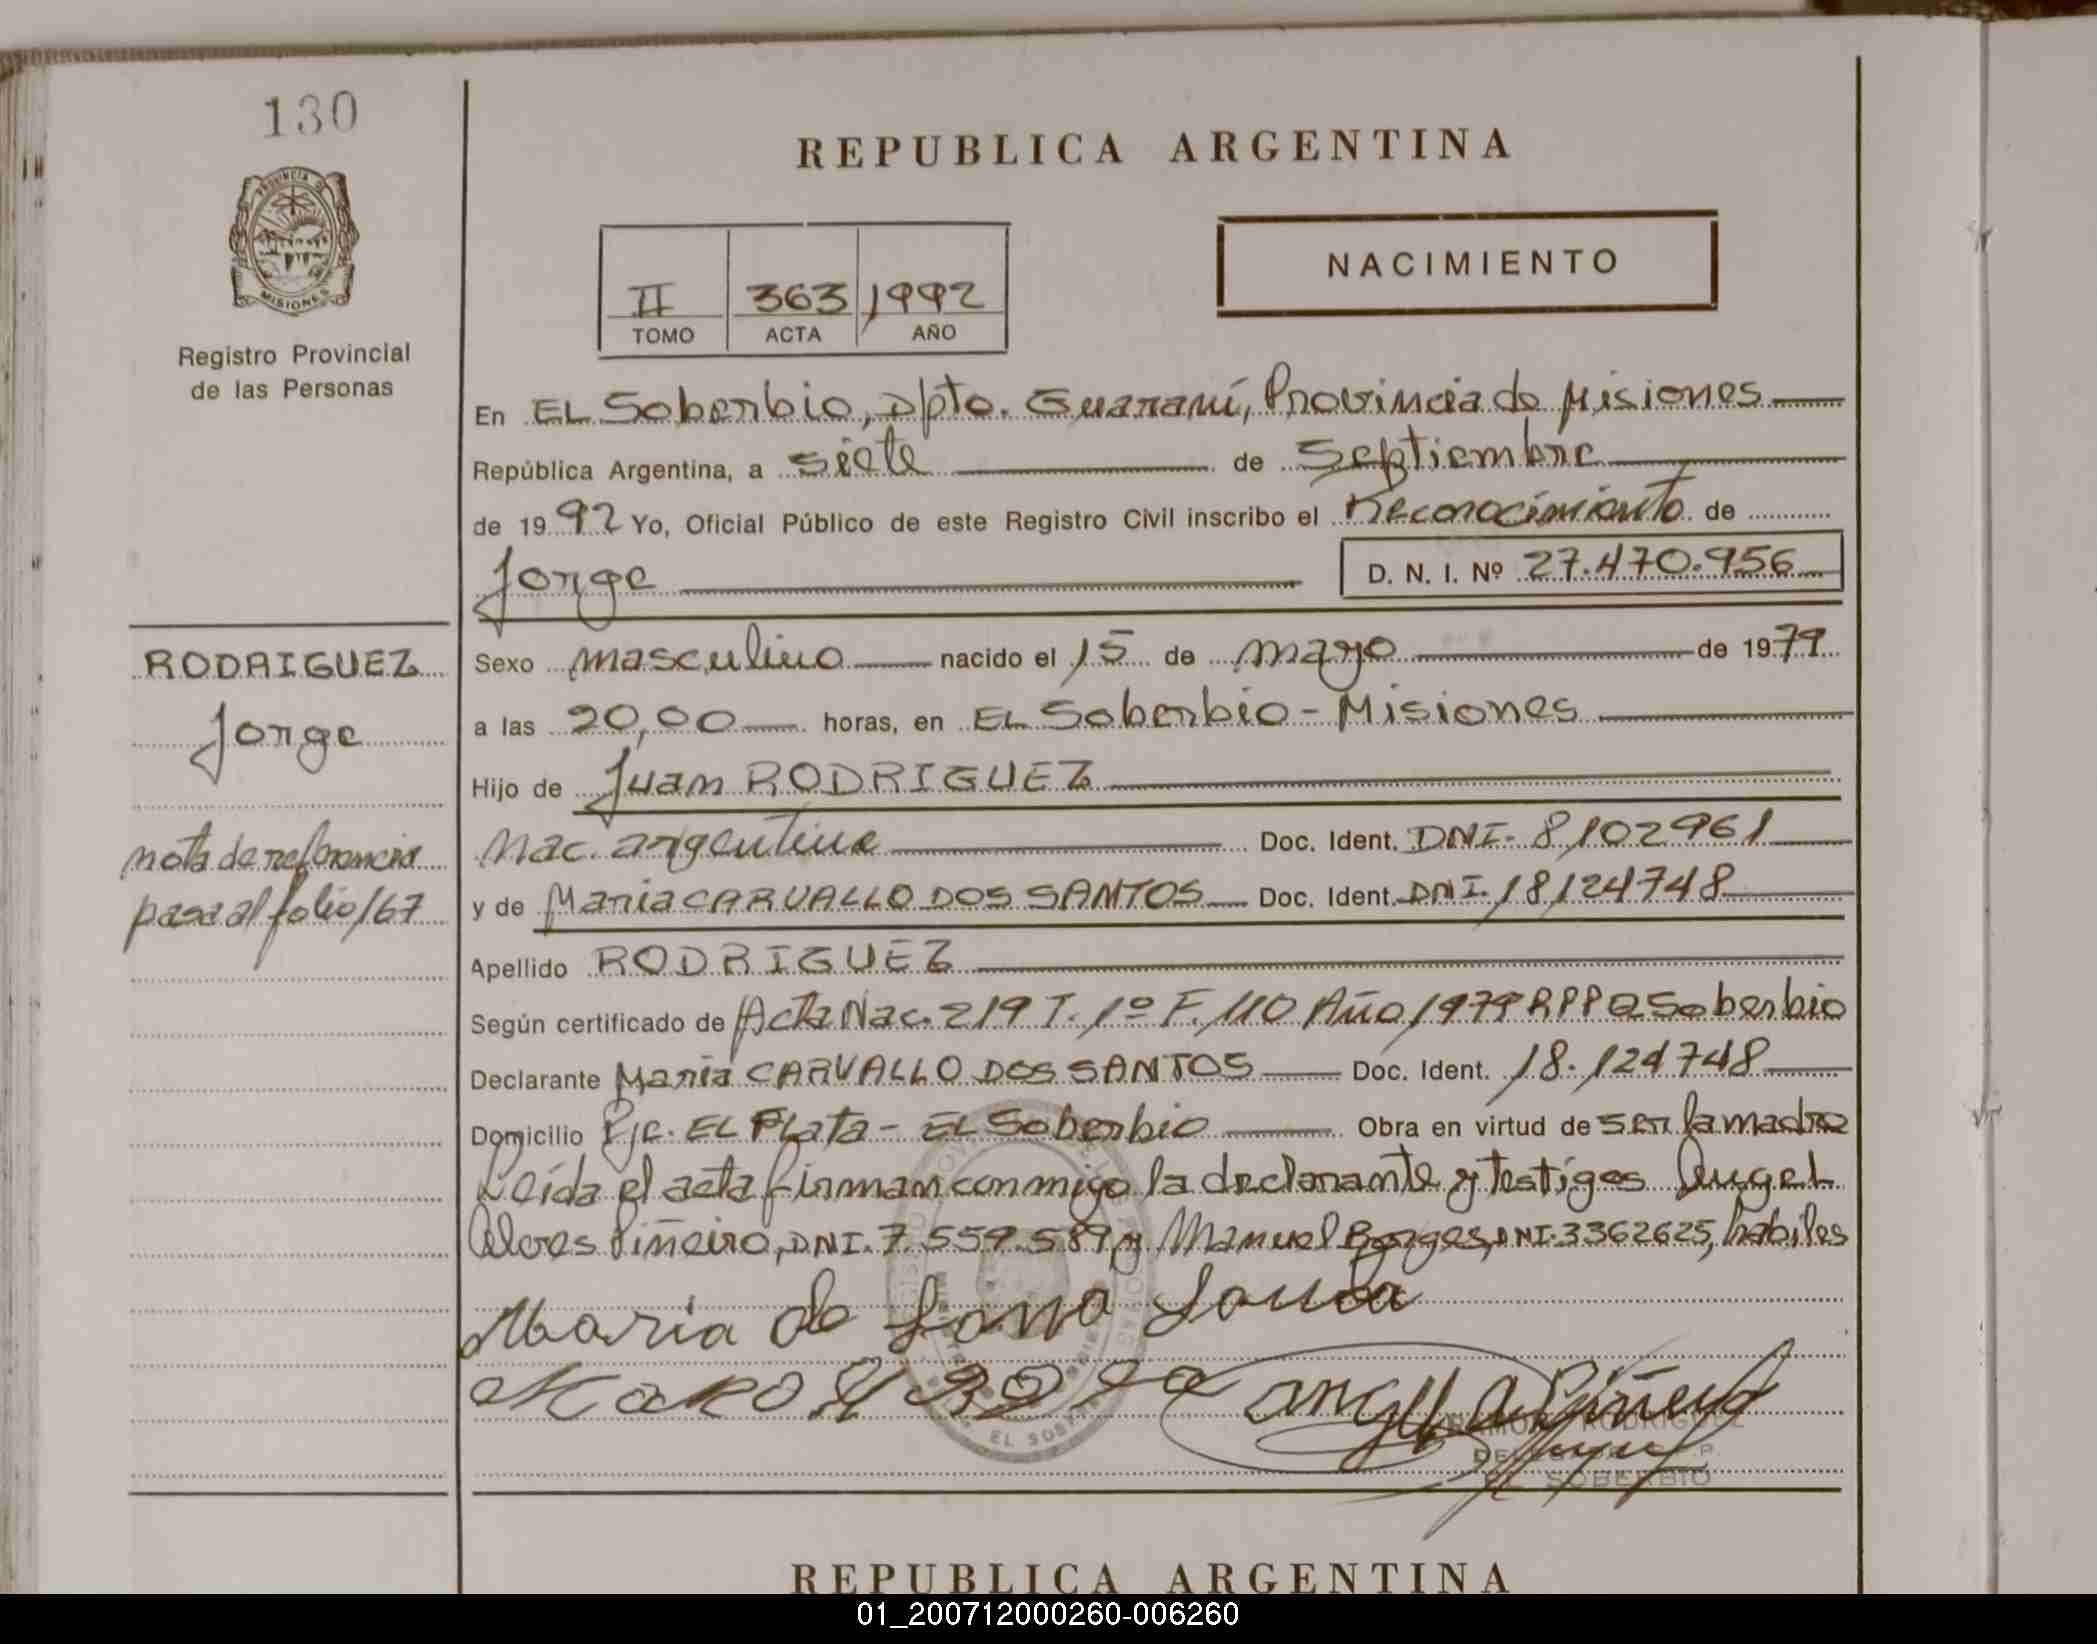 130
REPUBLICA ARGENTINA
PROVINCIA DE
MISIONES
Registro Provincial
de las Personas
II 363 1992
TOMO ACTA AÑO
NACIMIENTO
En EL Soberbio, Dpto. Guaraní, Provincia de Misiones
República Argentina, a siete de Septiembre
de 1992 Yo, Oficial Público de este Registro Civil inscribo el Reconocimiento de
Jorge
D. N. I. Nº 27.470.956
RODRIGUEZ
Jorge
nota de referencia
pasa al folio 167
Sexo masculino nacido el 15 de mayo de 1979
a las 20,00 horas, en EL Soberbio - Misiones
Hijo de Juan RODRIGUEZ
Nac. argentina Doc. Ident. DNI- 8102961
y de Maria CARVALLO DOS SANTOS Doc. Ident. DNI. 18124748
Apellido RODRIGUEZ
Según certificado de Acta Nac. 219 T. 1º F. 110 Año 1979 RPP Soberbio
Declarante Maria CARVALLO DOS SANTOS Doc. Ident. 18.124748
Domicilio Pje. EL Plata - EL Soberbio Obra en virtud de ser la madre
Leída el acta firman conmigo la declarante y testigos Angel
Alves Piñeiro, DNI. 7.559.589 y Manuel Borges, DNI. 3362625, habiles
Maria de
RODRIGUEZ
SOBERBIO
EL SOBERBIO
REPUBLICA ARGENTINA
01_200712000260-006260